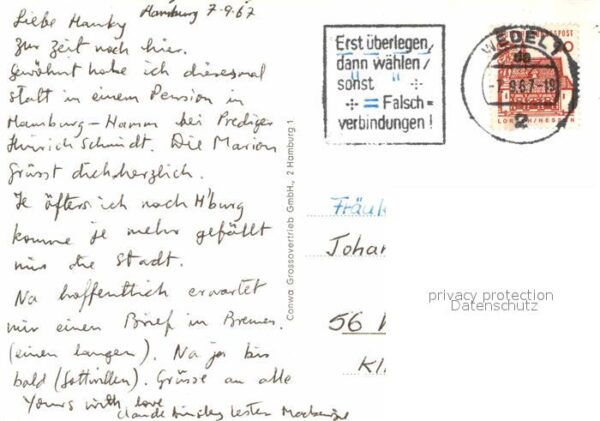 Hamburg 7-9.67
Liebe Hanky
Zur Zeit noch hier.
gewohnt habe ich dieresmal
statt in einem Pension in
Hamburg-Hamm bei Prediger
Hinrich Schmidt. Die Marion
Grüsst dich herzlich.
Je öfters ich nach H'burg
komme je mehr gefällt
mir die Stadt.
Na hoffentlich erwartet
mir einen Brief in Bremen.
(einen langen). Na ja bis
bald (Gottwillen). Grüsse an alle
Yours with love
Conwa Grossovertrieb GmbH., 2 Hamburg 1
Erst überlegen,
dann wählen/
sonst
= Falsch-
verbindungen!
WEDEL
da
-7.9.67-19
2
LORSCH/HESSEN
Fräul
Johan
56
Kl
privacy protection
Datenschutz